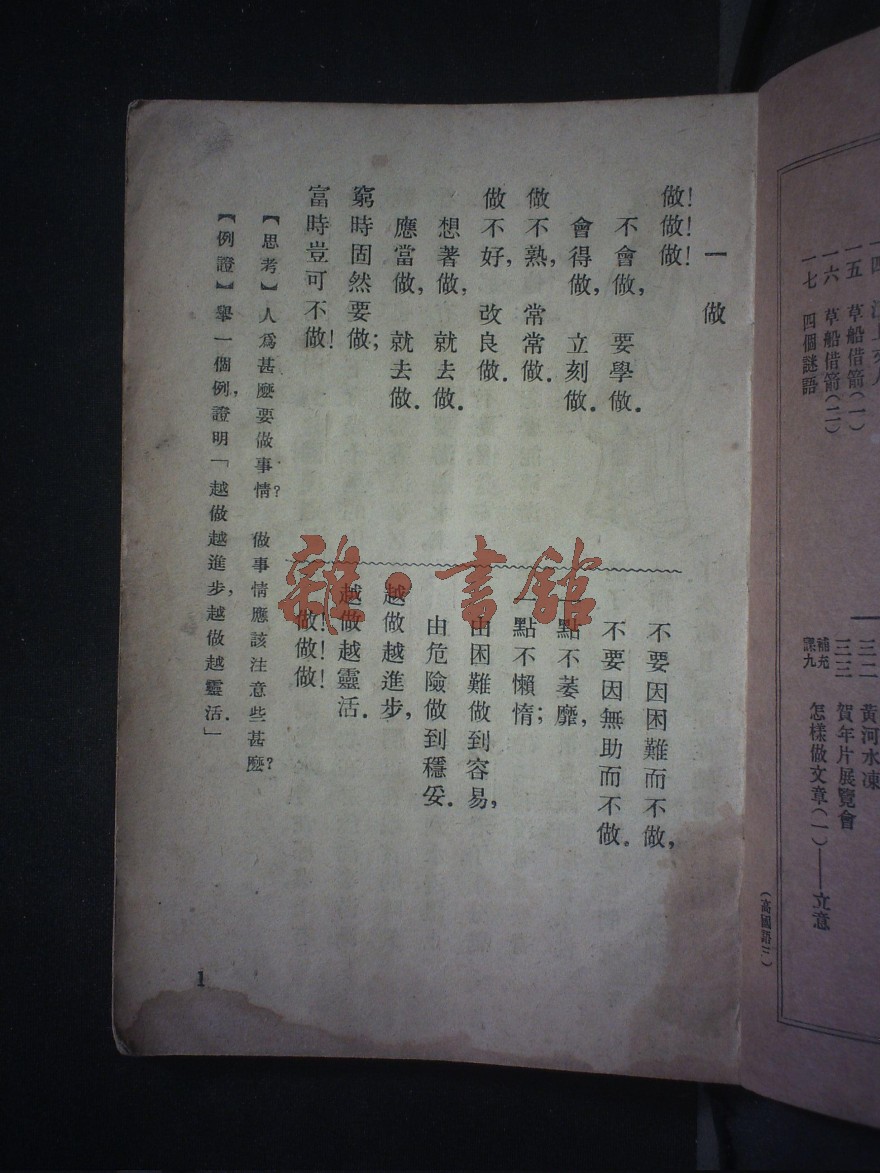 一四
一五 草船借箭(一)
一六 草船借箭(二)
一七 四個謎語
三二 黃河水凍
三三 賀年片展覽會
補充課九 怎樣做文章(一)——立意
(高國語二)
一 做
做!做!做!
不會做,要學做.
會得做,立刻做.
做不熟,常常做.
做不好,改良做.
想著做,就去做.
應當做,就去做.
窮時固然要做;
富時豈可不做!
不要因困難而不做,
不要因無助而不做.
一點不萎靡,
一點不懶惰;
由困難做到容易,
由危險做到穩妥.
越做越進步,
越做越靈活.
做!做!做!
【思考】人爲甚麼要做事情? 做事情應該注意些甚麼?
【例證】舉一個例,證明「越做越進步,越做越靈活.」
1
雜·書館